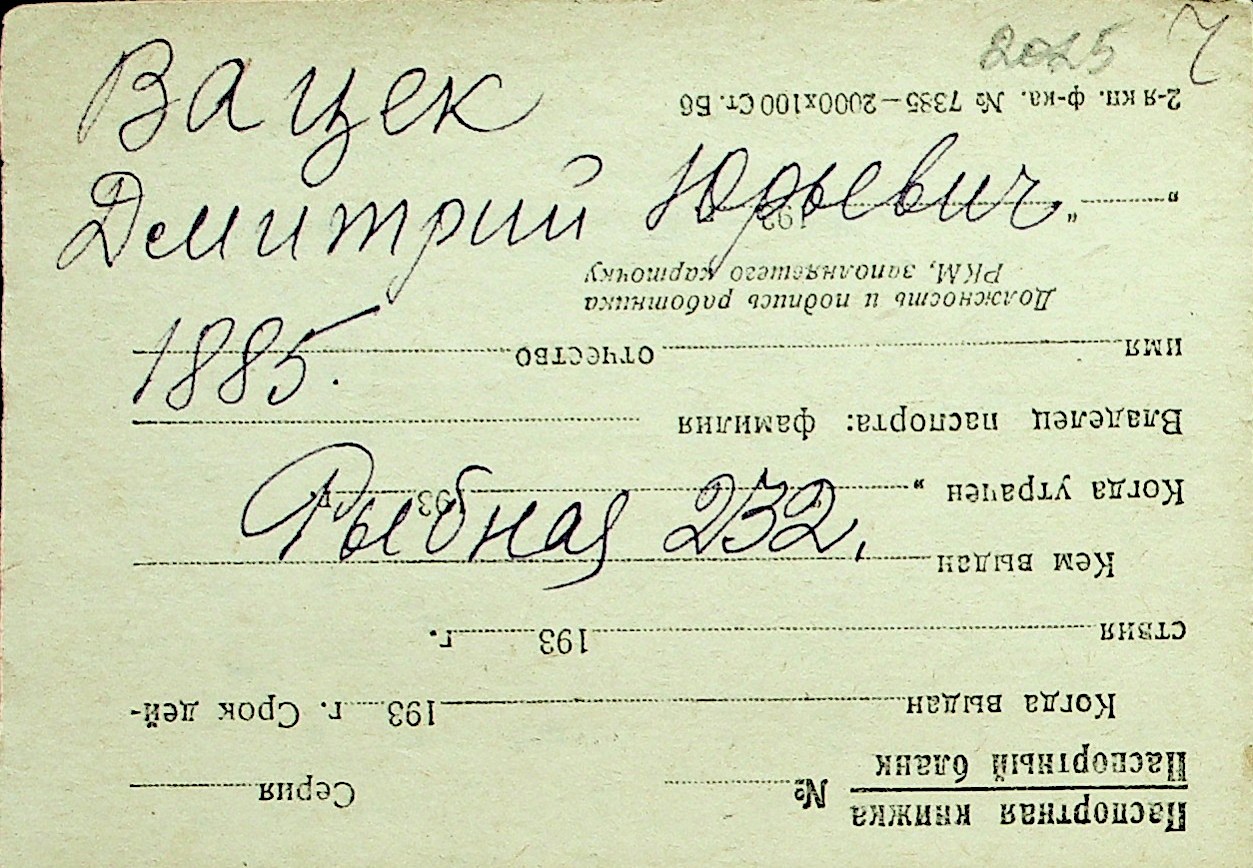 2025 7
Вацек
Дмитрий Юрьевич
1885.
Рыбная 232.
Паспортная книжка
Паспортный бланк
№ Серия
Когда выдан 193 г. Срок дей-
ствия 193 г.
Кем выдан
Когда утрачен „ 193 г.
Владелец паспорта: фамилия
имя отчество
Должность и подпись работника
РКМ, заполняющего карточку
„ “ 193
2-я кн. ф-ка. № 7385—2000х100 Ст. Б6